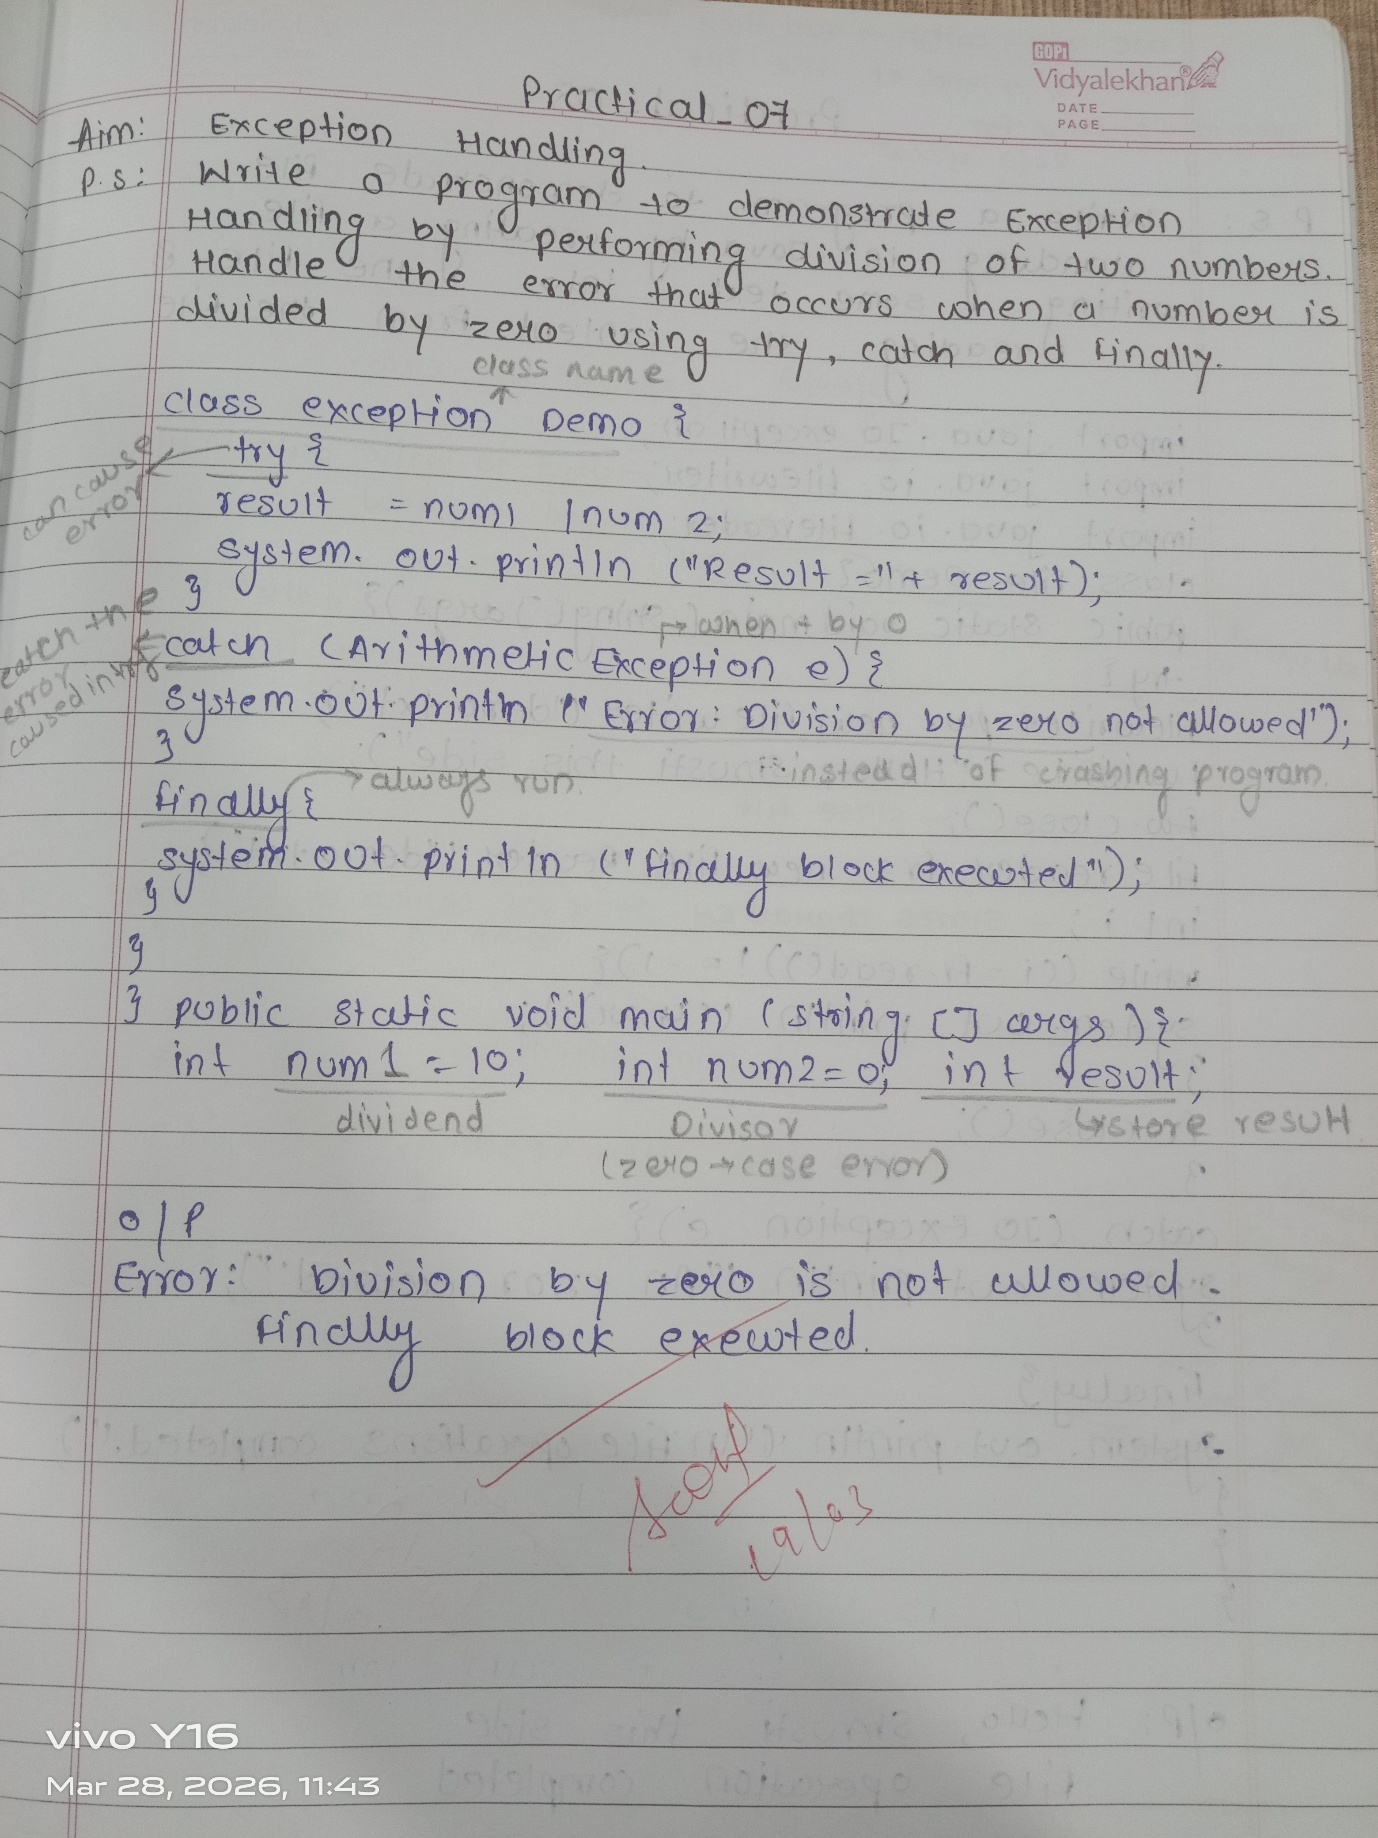 GOPI
Vidyalekhan®
DATE
PAGE
Practical_07
Aim: Exception Handling.
P.S: Write a program to demonstrate Exception
Handling by performing division of two numbers.
Handle the error that occurs when a number is
divided by zero using try, catch and finally.
class name
class exception Demo {
can cause error
try {
result = num1 / num 2;
system. out. println ("Result =" + result);
}
when ÷ by 0
catch the error caused in try
catch (Arithmetic Exception e) {
system.out.println (" Error: Division by zero not allowed");
}
insted of crashing program.
always run.
finally {
system.out.println ("finally block executed");
}
}
} public static void main (string [] args) {
int num1 = 10; int num2 = 0; int result;
dividend Divisor ↳ store result
(zero → case error)
O/P
Error: Division by zero is not allowed.
finally block executed.
vivo Y16
Mar 28, 2026, 11:43